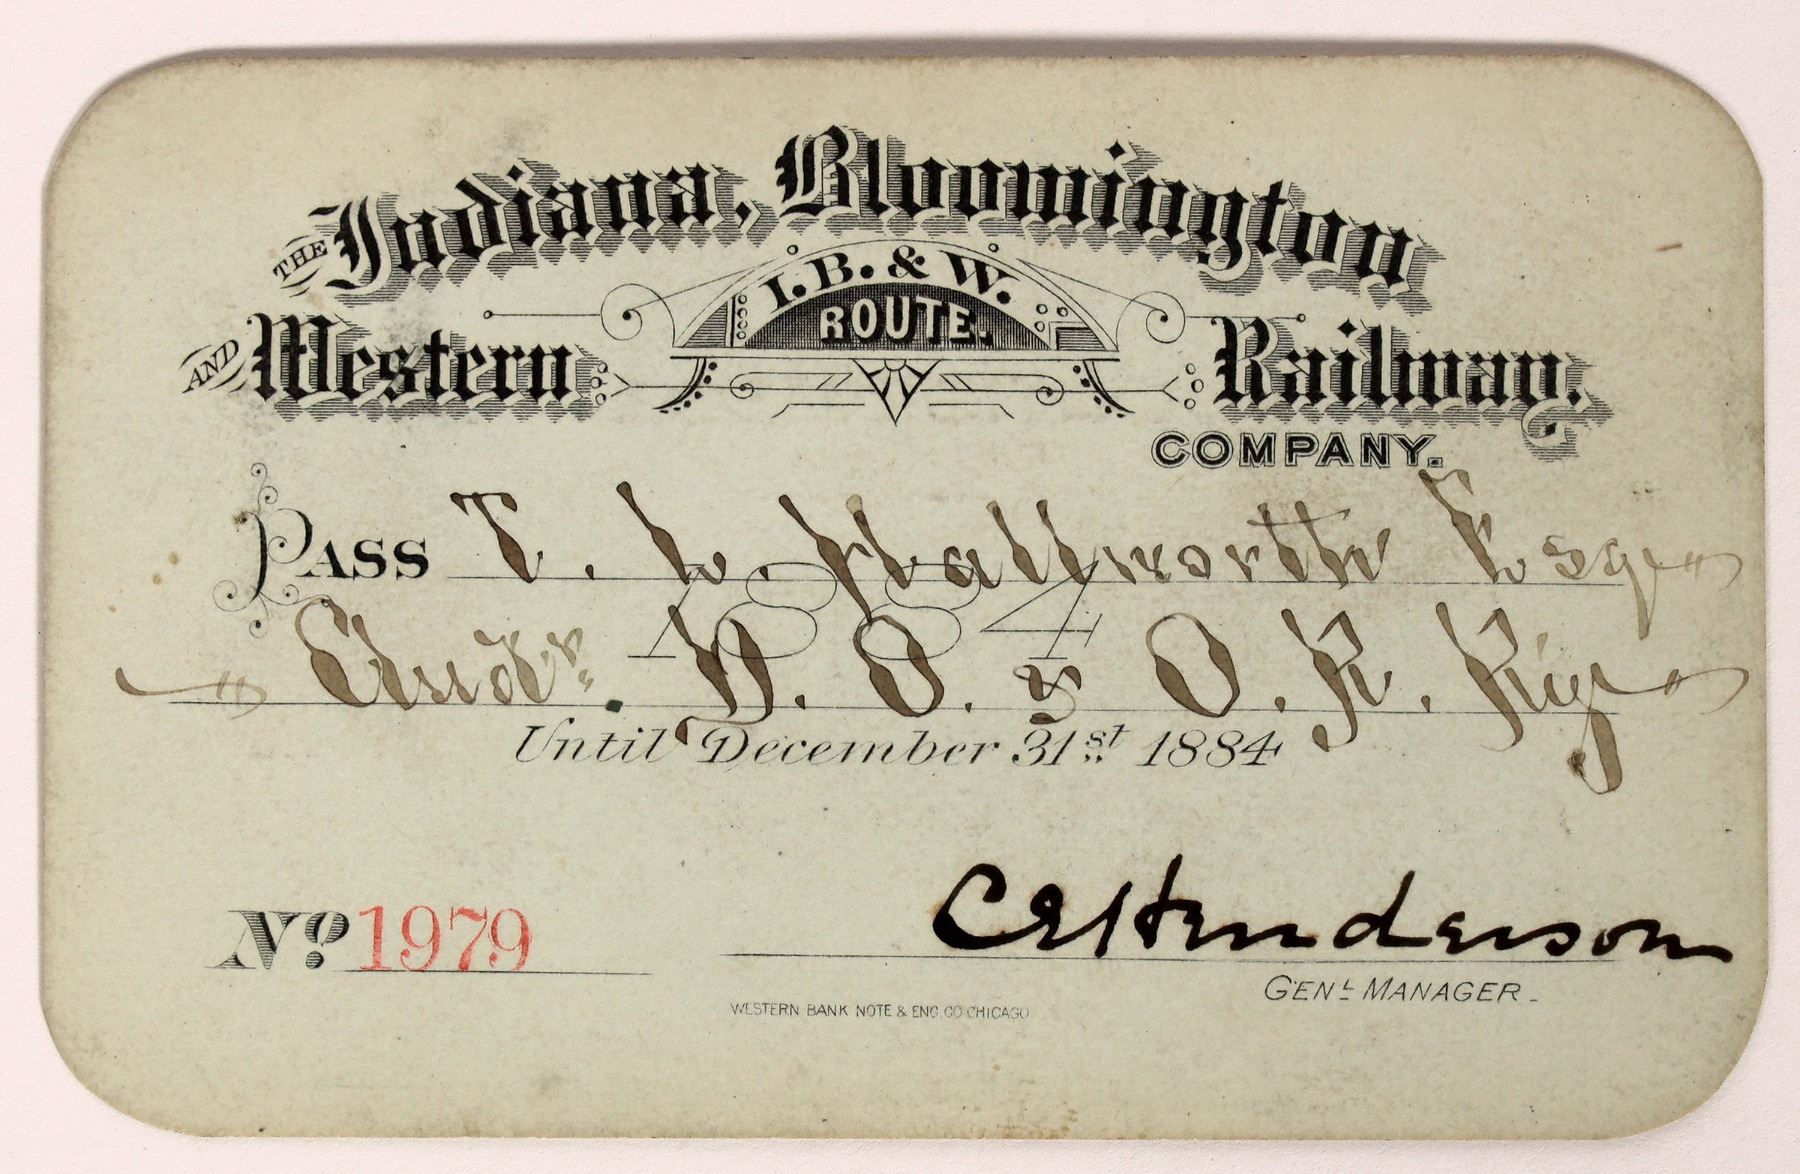 THE Indiana, Bloomington
I. B. & W.
ROUTE.
AND Western Railway.
COMPANY.
PASS T. L. Hallworth Esq.
1884
Audr. N. O. & O. R. R'y
Until December 31st 1884
No. 1979
C E Henderson
GENL MANAGER
WESTERN BANK NOTE & ENG. CO CHICAGO